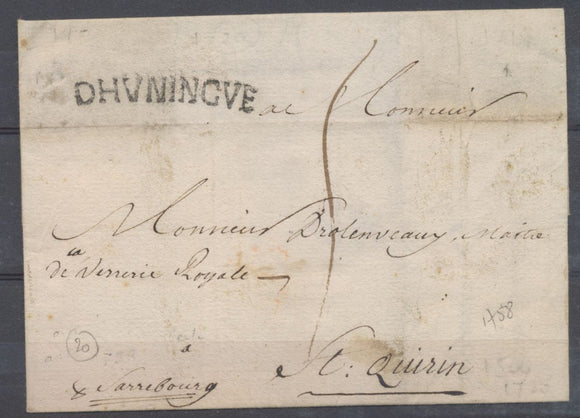 DHVNINGVE
a Monsieur
Monsieur Drolenveaux, Maitre
de la Verrerie Royale
20
1758
a
St: Quirin
Sarrebourg